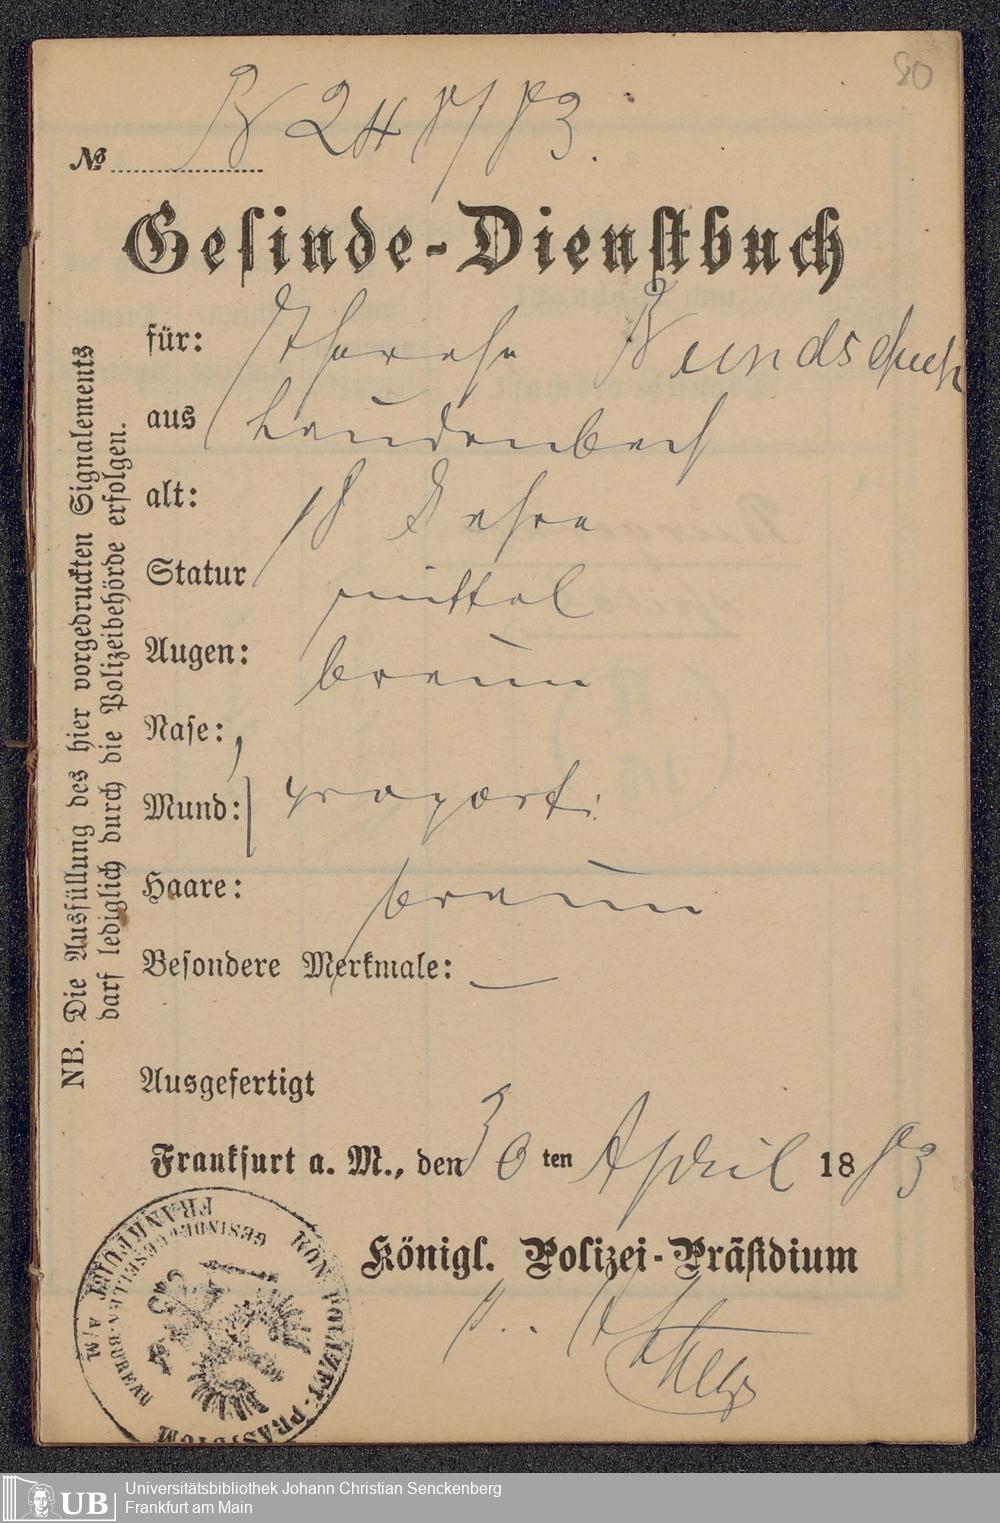 80
№ B 248/83.
Gesinde-Dienstbuch
für: Therese Bundschuh
aus Laudenbach
alt: 18 Jahre
Statur mittel
Augen: braun
Nase:
Mund: proport:
Haare: braun
Besondere Merkmale: —
Ausgefertigt
Frankfurt a. M., den 30ten April 1883
Königl. Polizei-Präsidium
NB. Die Ausfüllung des hier vorgedruckten Signalements
darf lediglich durch die Polizeibehörde erfolgen.
KÖN. POLIZEI-PRÄSIDIUM
FRANKFURT a/M
GESINDE-GESELLEN-BUREAU
UB
Universitätsbibliothek Johann Christian Senckenberg
Frankfurt am Main